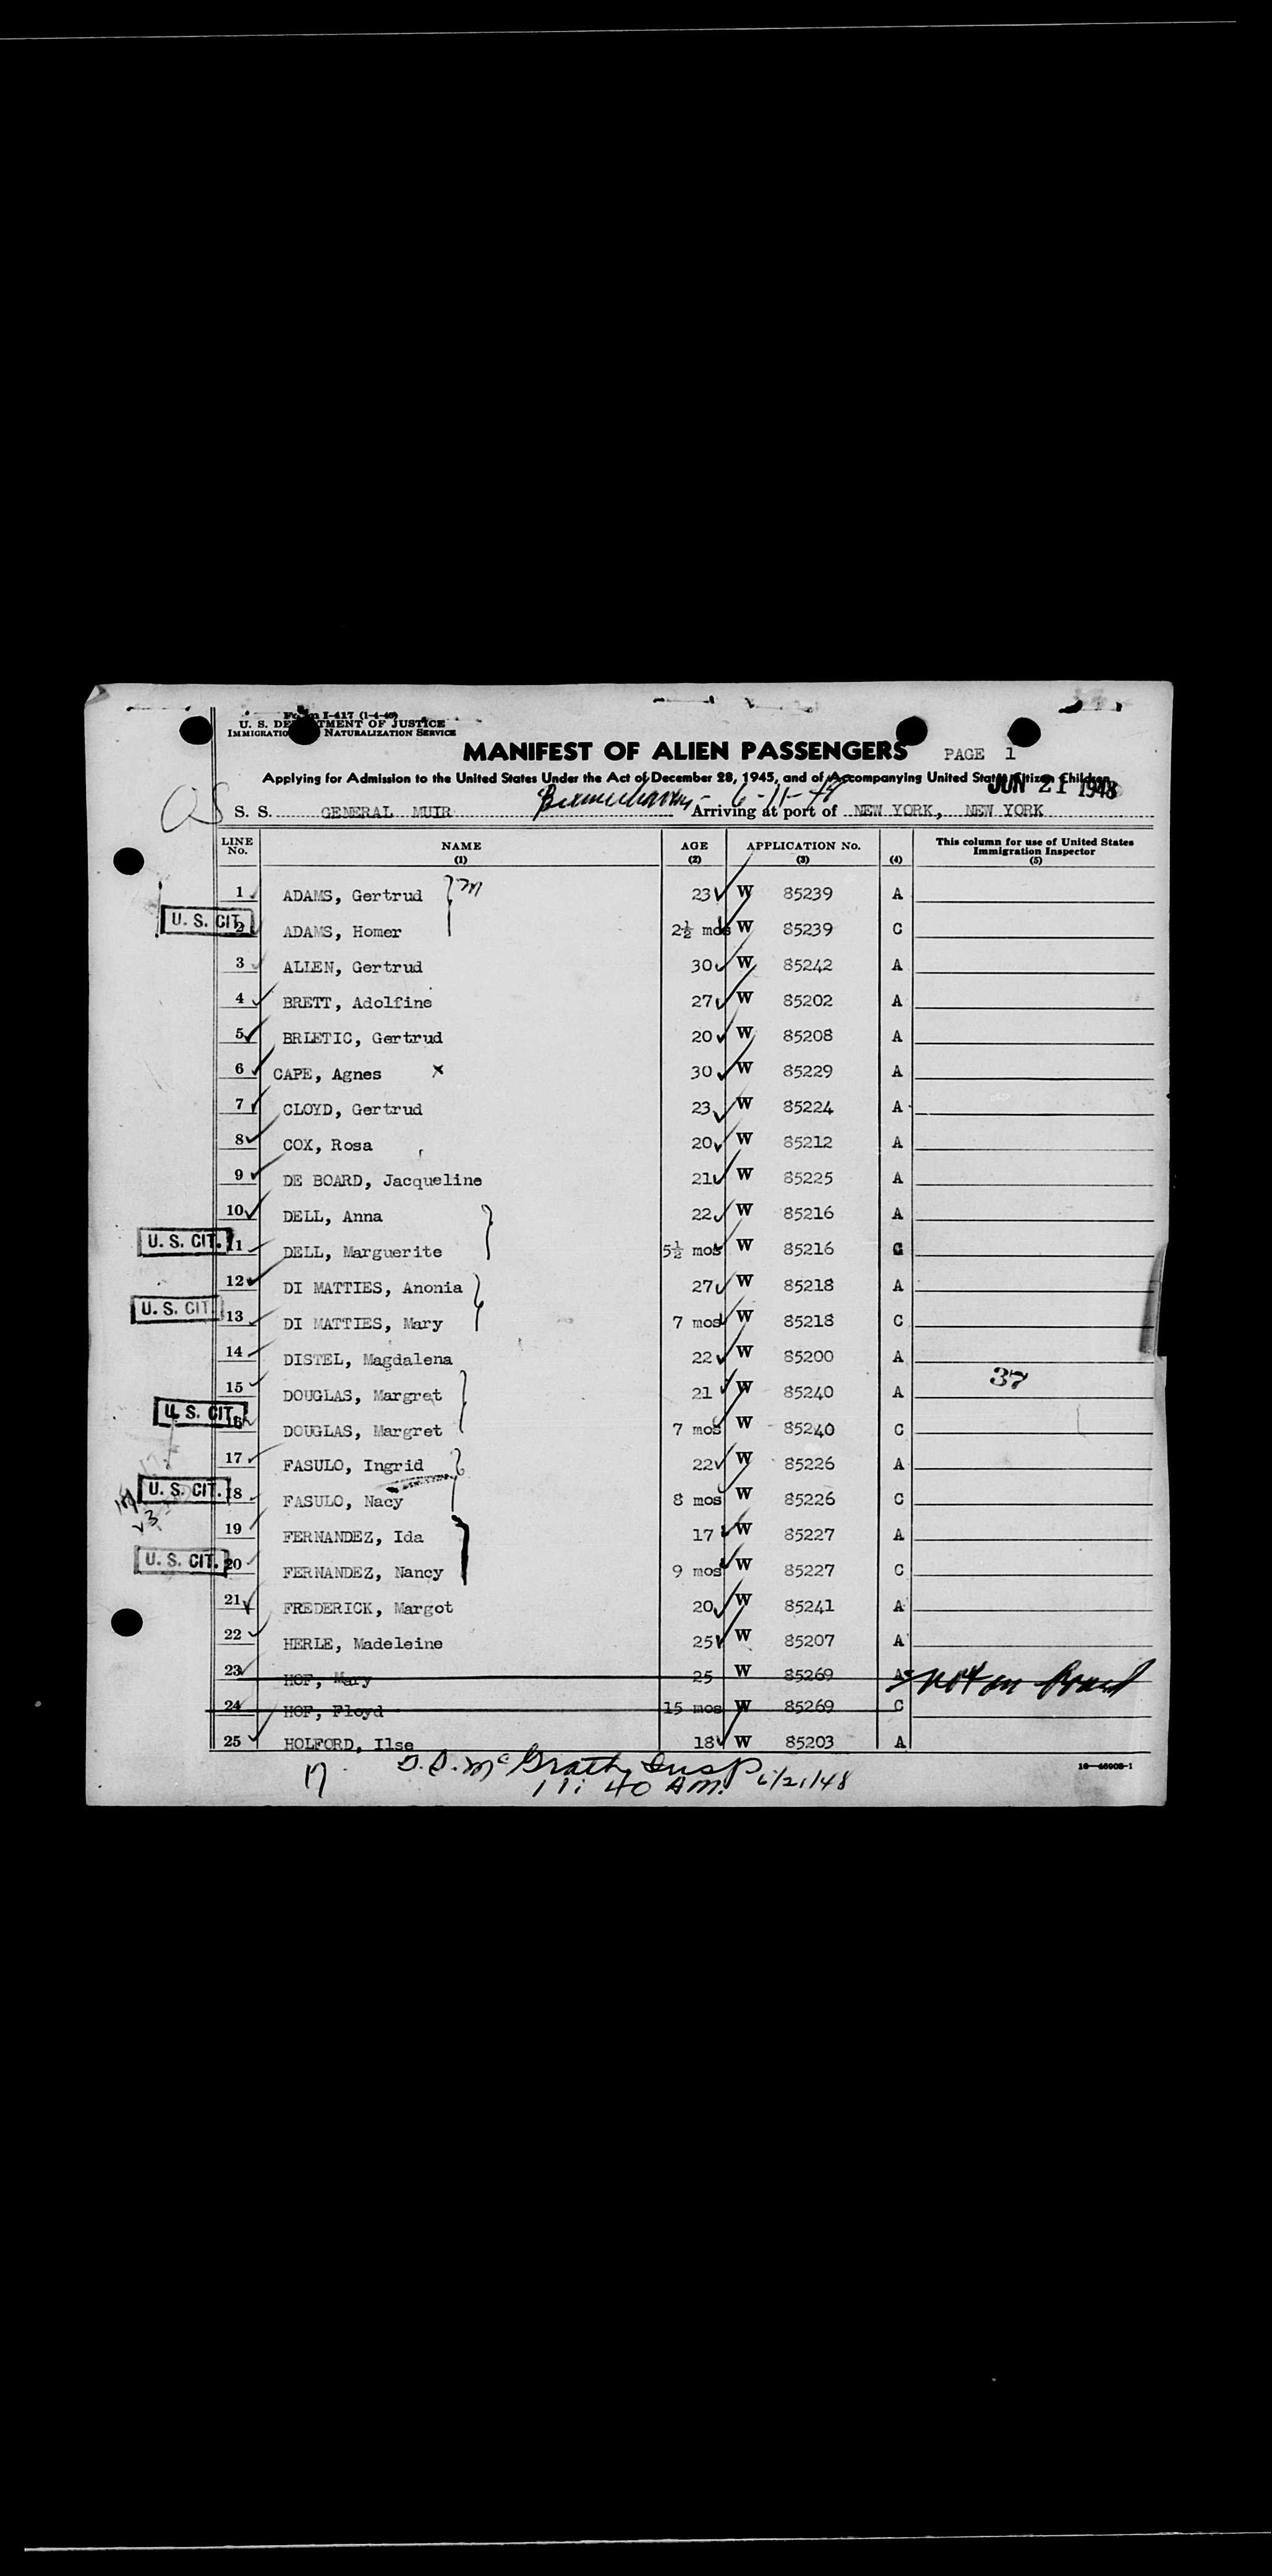 Form I-417 (1-4-46)
U. S. DEPARTMENT OF JUSTICE
IMMIGRATION NATURALIZATION SERVICE
MANIFEST OF ALIEN PASSENGERS PAGE 1
Applying for Admission to the United States Under the Act of December 28, 1945, and of Accompanying United States Citizen Children
JUN 21 1948
S. S. GENERAL MUIR Bremerhaven - 6-11-48 Arriving at port of NEW YORK, NEW YORK
LINE No. NAME (1) AGE (2) APPLICATION No. (3) (4) This column for use of United States Immigration Inspector (5)
1 ADAMS, Gertrud 23 W 85239 A
U. S. CIT. 2 ADAMS, Homer 2½ mos W 85239 C
3 ALLEN, Gertrud 30 W 85242 A
4 BRETT, Adolfine 27 W 85202 A
5 BRLETIC, Gertrud 20 W 85208 A
6 CAPE, Agnes x 30 W 85229 A
7 CLOYD, Gertrud 23 W 85224 A
8 COX, Rosa 20 W 85212 A
9 DE BOARD, Jacqueline 21 W 85225 A
10 DELL, Anna 22 W 85216 A
U. S. CIT. 11 DELL, Marguerite 5½ mos W 85216 C
12 DI MATTIES, Anonia 27 W 85218 A
U. S. CIT. 13 DI MATTIES, Mary 7 mos W 85218 C
14 DISTEL, Magdalena 22 W 85200 A
37
15 DOUGLAS, Margret 21 W 85240 A
U. S. CIT. 16 DOUGLAS, Margret 7 mos W 85240 C
17 FASULO, Ingrid 22 W 85226 A
U. S. CIT. 18 FASULO, Nacy 8 mos W 85226 C
19 FERNANDEZ, Ida 17 W 85227 A
U. S. CIT. 20 FERNANDEZ, Nancy 9 mos W 85227 C
21 FREDERICK, Margot 20 W 85241 A
22 HERLE, Madeleine 25 W 85207 A
23 HOF, Mary 25 W 85269 A not on board
24 HOF, Floyd 15 mos W 85269 C
25 HOLFORD, Ilse 18 W 85203 A
17 McGrath, Insp 6/21/48
11:40 AM.
16—46908-1